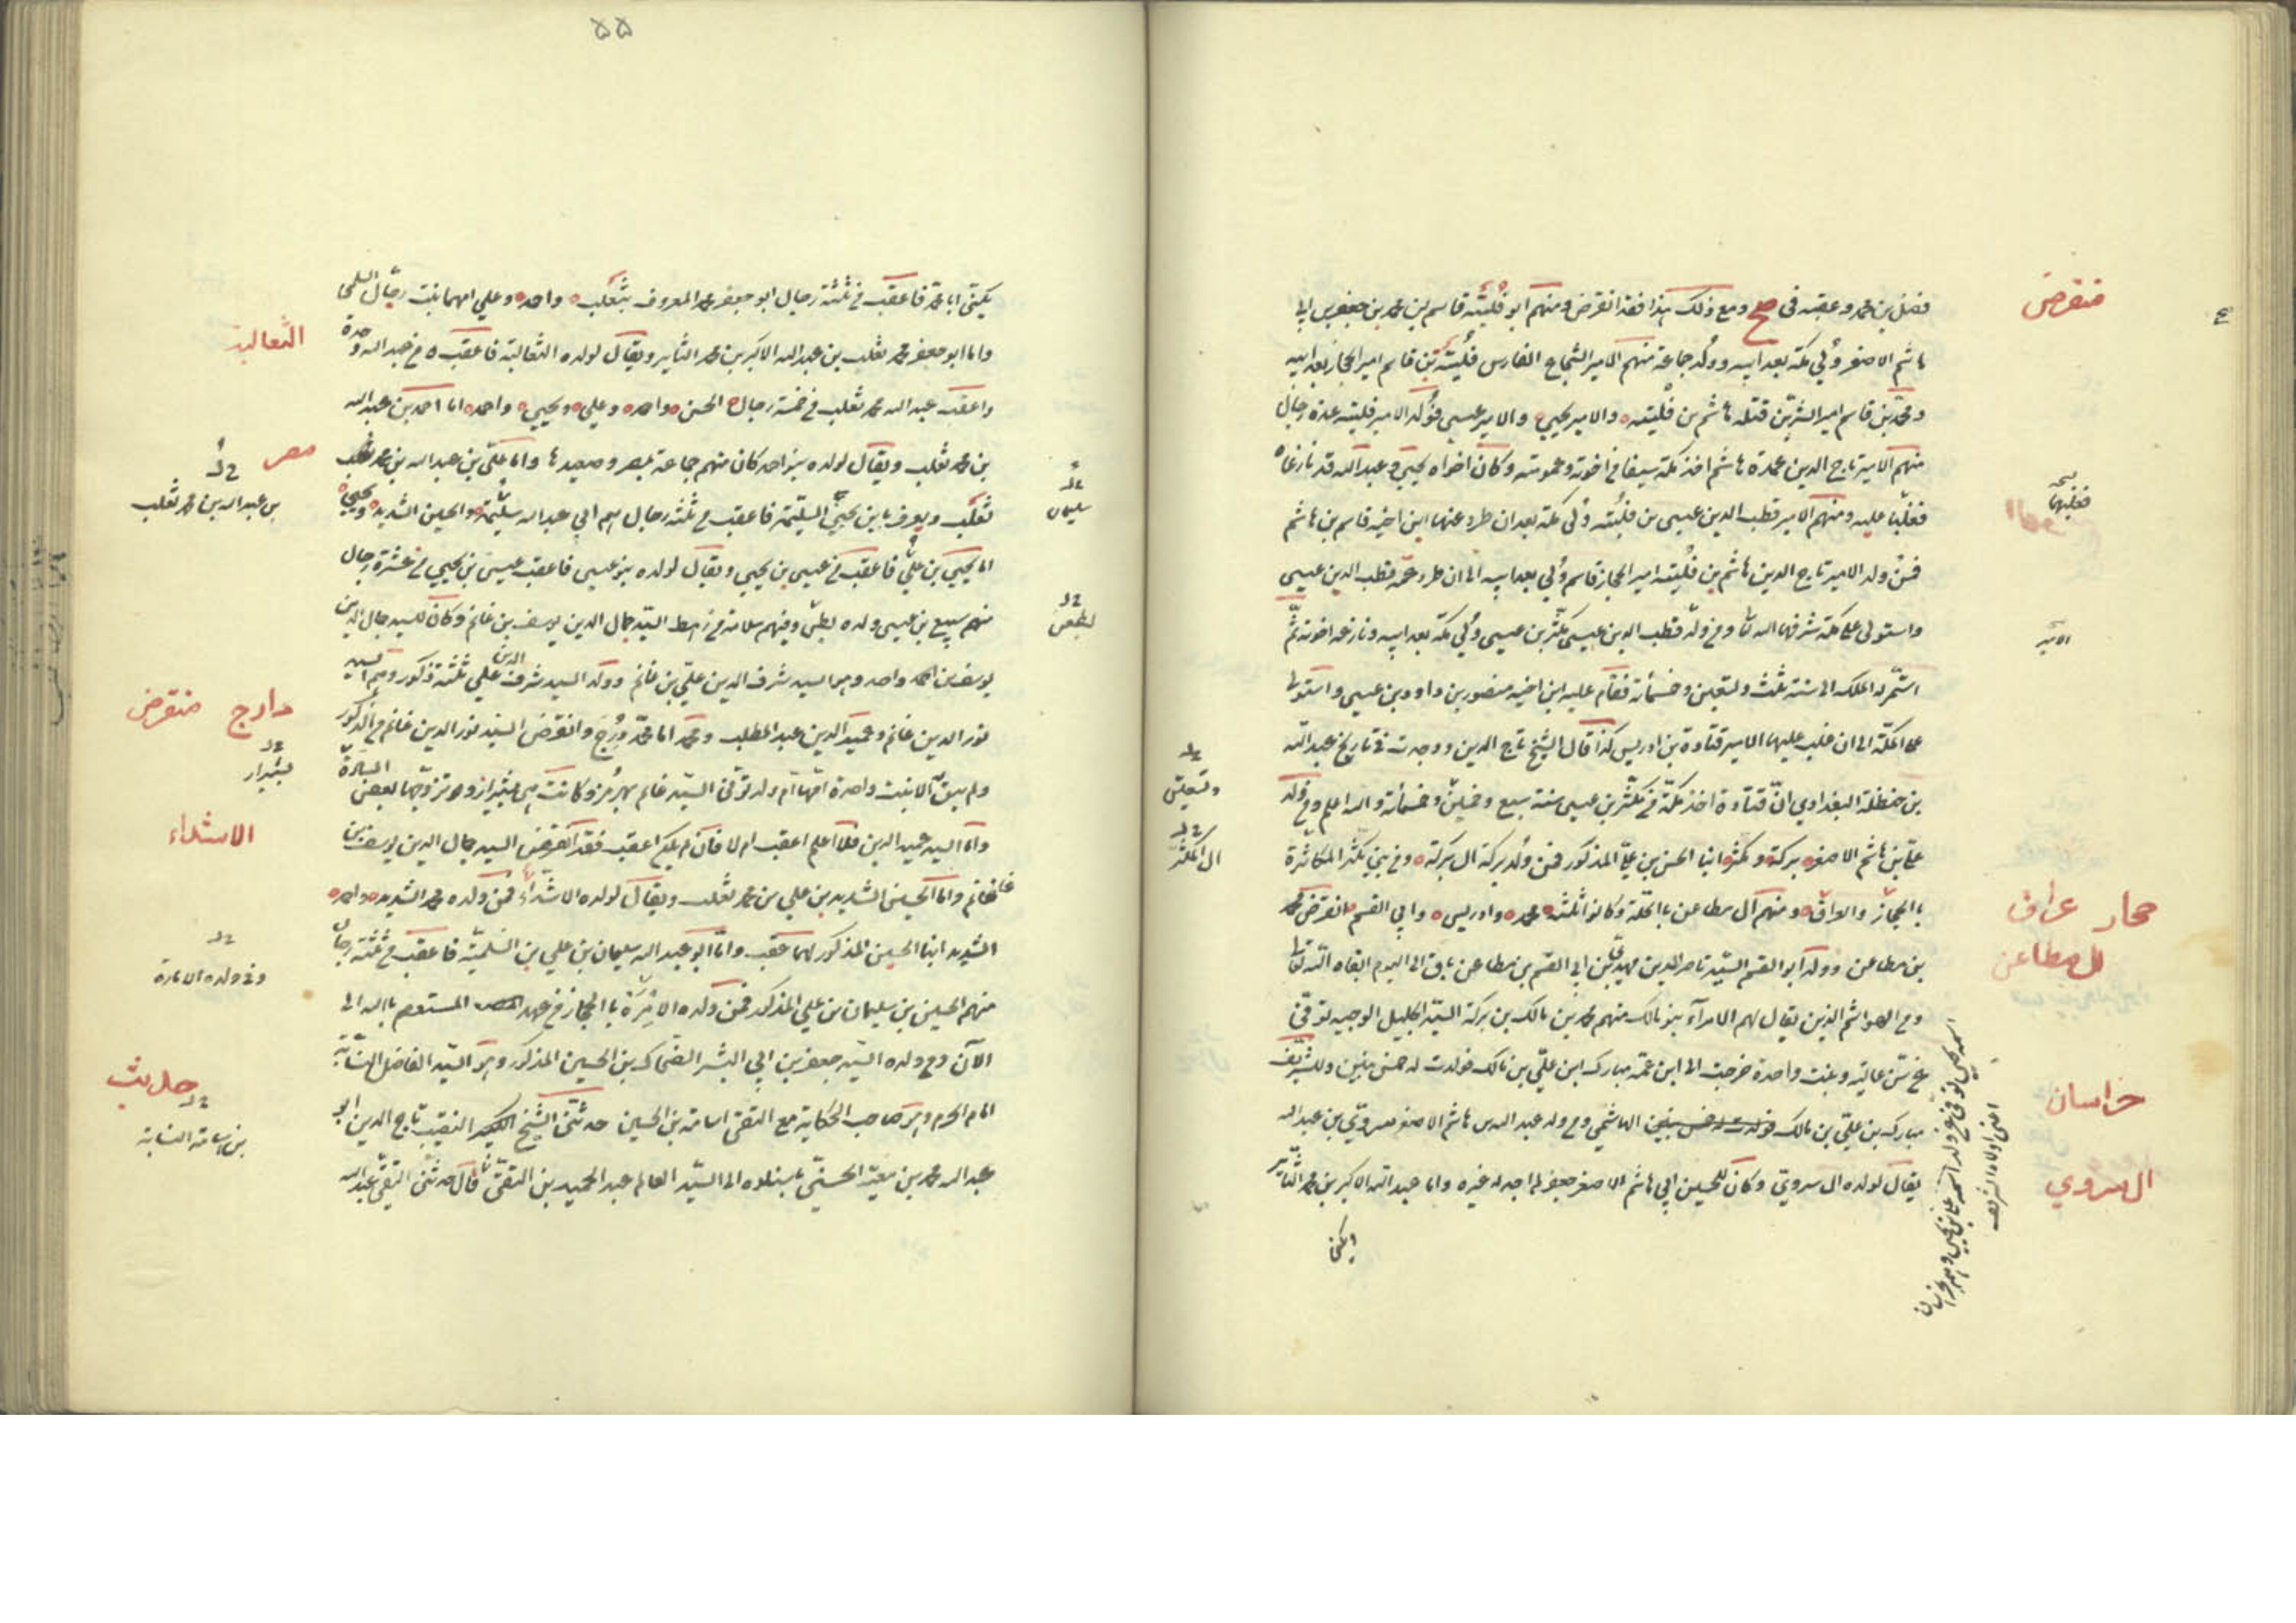 فضل بن محمد وعقبه فى صح ومع ذلك هذا فقد انقرض ومنهم ابو فُليتَه قاسم بن محمد بن جعفر بن ابى
هاشم الاصغر وُلي مكة بعد ابيه وولد جماعة منهم الامير الشجاع الفارس فُليتَه بن قاسم امير الحجاز بعد ابيه
ومحمد بن قاسم امير السرّين قتله هاشم بن فُليته والامير يحيي والامير عيسي فوُلد الامير فليته عدة رجال
منهم الامير تاج الدين عمدة هاشم اخذ مكة سيفا في اخوته وعمومته وكان اخواه يحيي وعبد الله قد نازعاه
فغلبا عليه ومنهم الامير قطب الدين عيسى بن فليته وُلى مكة بعد ان طرد عنها ابن اخيه قاسم بن هاشم
فمن ولد الامير تاج الدين هاشم بن فُليته امير الحجاز قاسم وُلي بعد ابيه الى ان طرد عمه قطب الدين عيسى
واستولى على مكة شرفها الله تعا ومن ولد قطب الدين عيسى مكثر بن عيسى وُلي مكة بعد ابيه ونازعه اخوته ثم
استمر له الملك الى سنة ثلث وتسعين وخمسمأة فقام عليه ابن اخيه منصور بن داود بن عيسى واستولى
على مكة الى ان غلب عليها الامير قتادة بن ادريس كذا قال الشيخ تاج الدين ووجدت فى تاريخ عبد الله
بن حنظلة البغدادي انّ قتادة اخذ مكة من مكثر بن عيسى سنة سبع وخمسين وخمسمأة والله اعلم ومن ولد
علي بن هاشم الاصغر بركة ومكثر ابنا الحسن بن علي المذكور فمن ولد بركة ال بركة ومن بني مكثر المكاثرة
بالحجاز والعراق ومنهم آل مطاعن بالحلة وكانوا ثلثة محمد وادريس وابي القسم انقرض محمد
بن مطاعن وولد ابو القسم السيد ناصر الدين مهدي بن ابي القسم بن مطاعن باق الى اليوم ابقاه الله تعا
ومن الهواشم الذين يقال لهم الامرآء بنو مالك منهم محمد بن مالك بن بركة السيد الجليل الوجيه توفى
عن سن عالية وبنت واحدة خرجت الى ابن عمه مبارك ابن علي بن مالك فولدت له خمس بنين وللشريف
مبارك بن علي بن مالك فولدت له خمس بنين الهاشمي ومن ولد عبد الله بن هاشم الاصغر سروي بن عبد الله
يقال لولده ال سروي وكان للحسين ابي هاشم الاصغر جعفر لم اجد له غيره واما عبد الله الاكبر بن محمد الثاير
ويكنى
منقرض
ع
فغلبها
الامير
وتسعين
ال المكثر
حجاز عراق
ال مطاعن
خراسان
ال سروي
۵۵
يكنى ابا محمد فاعقب فى ثلثة رجال ابو جعفر محمد المعروف بثعلب واحمد وعلي امهما بنت رجال السلمي
واما ابو جعفر محمد ثعلب بن عبد الله الاكبر بن محمد الثاير ويقال لولده الثعالبة فاعقب من عبد الله وحده
واعقب عبد الله بن محمد ثعلب فى خمسة رجال الحسن واحمد وعلي ويحيي واحمد اما احمد بن عبد الله
بن محمد ثعلب ويقال لولده بنو احمد كان منهم جماعة بمصر وصعيدها واما علي بن عبد الله بن محمد ثعلب
ثعلب ويعرف بابن السلمية فاعقب من ثلثة رجال هم ابي عبد الله سليمان والحسين الشديد ويحيي
اما يحيي بن علي فاعقب من عيسى بن يحيي ويقال لولده بنو عيسى فاعقب عيسى بن يحيي من عشرة رجال
منهم سبيع بن عيسى ولده بطن ومنهم سلامة من رهط السيد جمال الدين يوسف بن غانم وكان للسيد جمال الدين
يوسف بن اخ واحد وهو السيد شرف الدين علي بن غانم وولد السيد شرف الدين علي ثلثة ذكور وهم السيد
نور الدين غانم وعميد الدين عبد المطلب ومحمد اما محمد دُرج وانقرض السيد نور الدين غانم من الذكور
ولم يبق الا بنت واحدة امها ام ولد توفى السيد غانم بهرمز وكانت هي بشيراز وتزوجها بعض السادة
واما السيد عميد الدين فلا اعلم اعقب ام لا فان لم يكن اعقب فقد انقرض السيد جمال الدين يوسف بن
غانم واما الحسين الشديد بن علي بن محمد ثعلب ويقال لولده الاشداء فمن ولده محمد الشديد واحمد
الشديد ابنا الحسين المذكور لهما عقب واما ابو عبد الله سليمان بن علي بن السلمية فاعقب من ثلثة رجال
منهم الحسين بن سليمان بن علي المذكور فمن ولده الامرة بالحجاز من عهد المستعصم بالله الى
الآن ومن ولده السيد جعفر بن ابي البشر الضحاك بن الحسين المذكور وهو السيد الفاضل النسابة
امام الحرم وهو صاحب الحكاية مع التقى اسامة بن الحسين حدثنى الشيخ النقيب تاج الدين ابو
عبد الله محمد بن معية الحسنى باسناده الى السيد العالم عبد الحميد بن التقى قال حدثنى التقى عبد الله
الثعالبة
مصر
بن عبد الله بن محمد ثعلب
سليمان
بطن
دارج منقرض
بشيراز
الاشداء
وفى ولده الامارة
حديث
بن اسامة النسابة